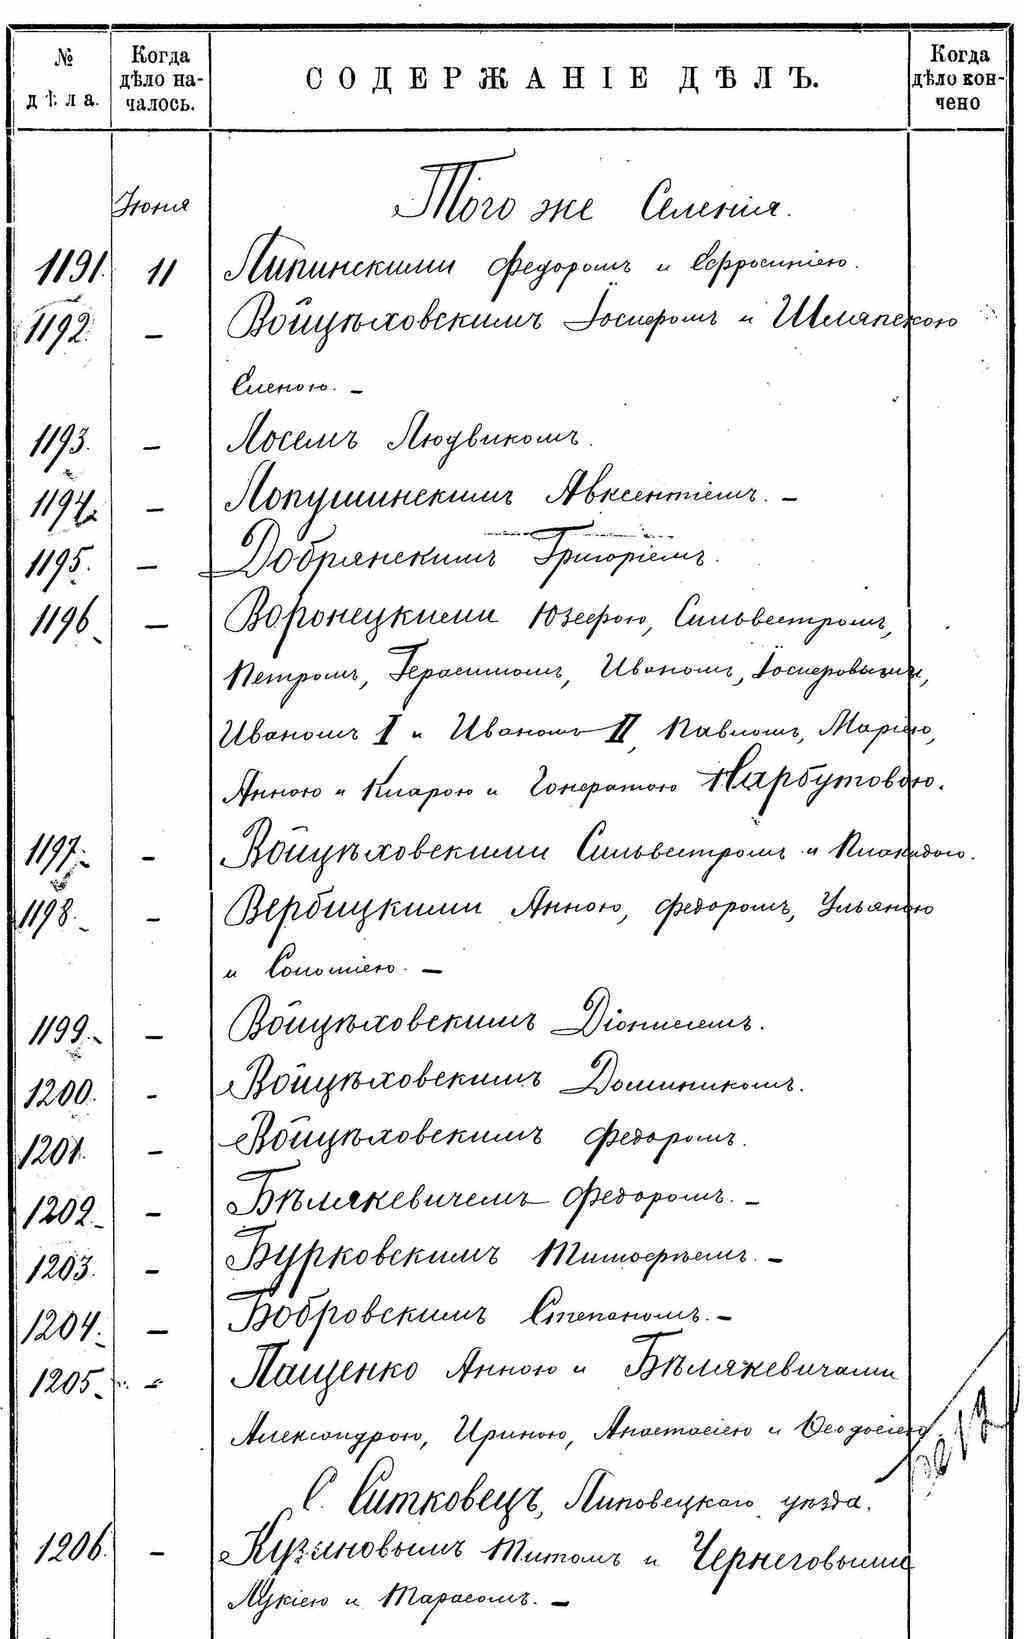 № дѣла.
Когда дѣло началось.
СОДЕРЖАНІЕ ДѢЛЪ.
Когда дѣло кончено
Іюня
Того же Селенія.
1191. 11 Липинскими Федоромъ и Ефросиніею.
1192. — Войцѣховскимъ Іосифомъ и Шляпскою
Еленою. —
1193. — Лосемъ Людвикомъ.
1194. — Лопушинскимъ Авксентіемъ. —
1195. — Добрянскимъ Григоріемъ.
1196 — Воронецкими Юзефою, Сильвестромъ,
Петромъ, Герасимомъ, Иваномъ, Іосифовымъ,
Иваномъ I и Иваномъ II, Павломъ, Маріею,
Анною и Кларою и Гонератою Нарбутовою.
1197. — Войцѣховскими Сильвестромъ и Плакидою.
1198. — Вербицкими Анною, Федоромъ, Ульяною
и Соломіею. —
1199. — Войцѣховскимъ Діонисіемъ.
1200. - Войцѣховскимъ Доминикомъ.
1201. — Войцѣховскимъ Федоромъ.
1202. — Бѣлякевичемъ Федоромъ. —
1203. — Бурковскимъ Тимофѣемъ. —
1204. — Бобровскимъ Степаномъ. —
1205. — Пащенко Анною и Бѣлякевичами
Александрою, Ириною, Анастасіею и Ѳеодосіею
С. Ситковецъ, Липовецкаго уѣзда.
1206. — Титомъ и Чернеговыми
Лукіею и Тарасомъ. —